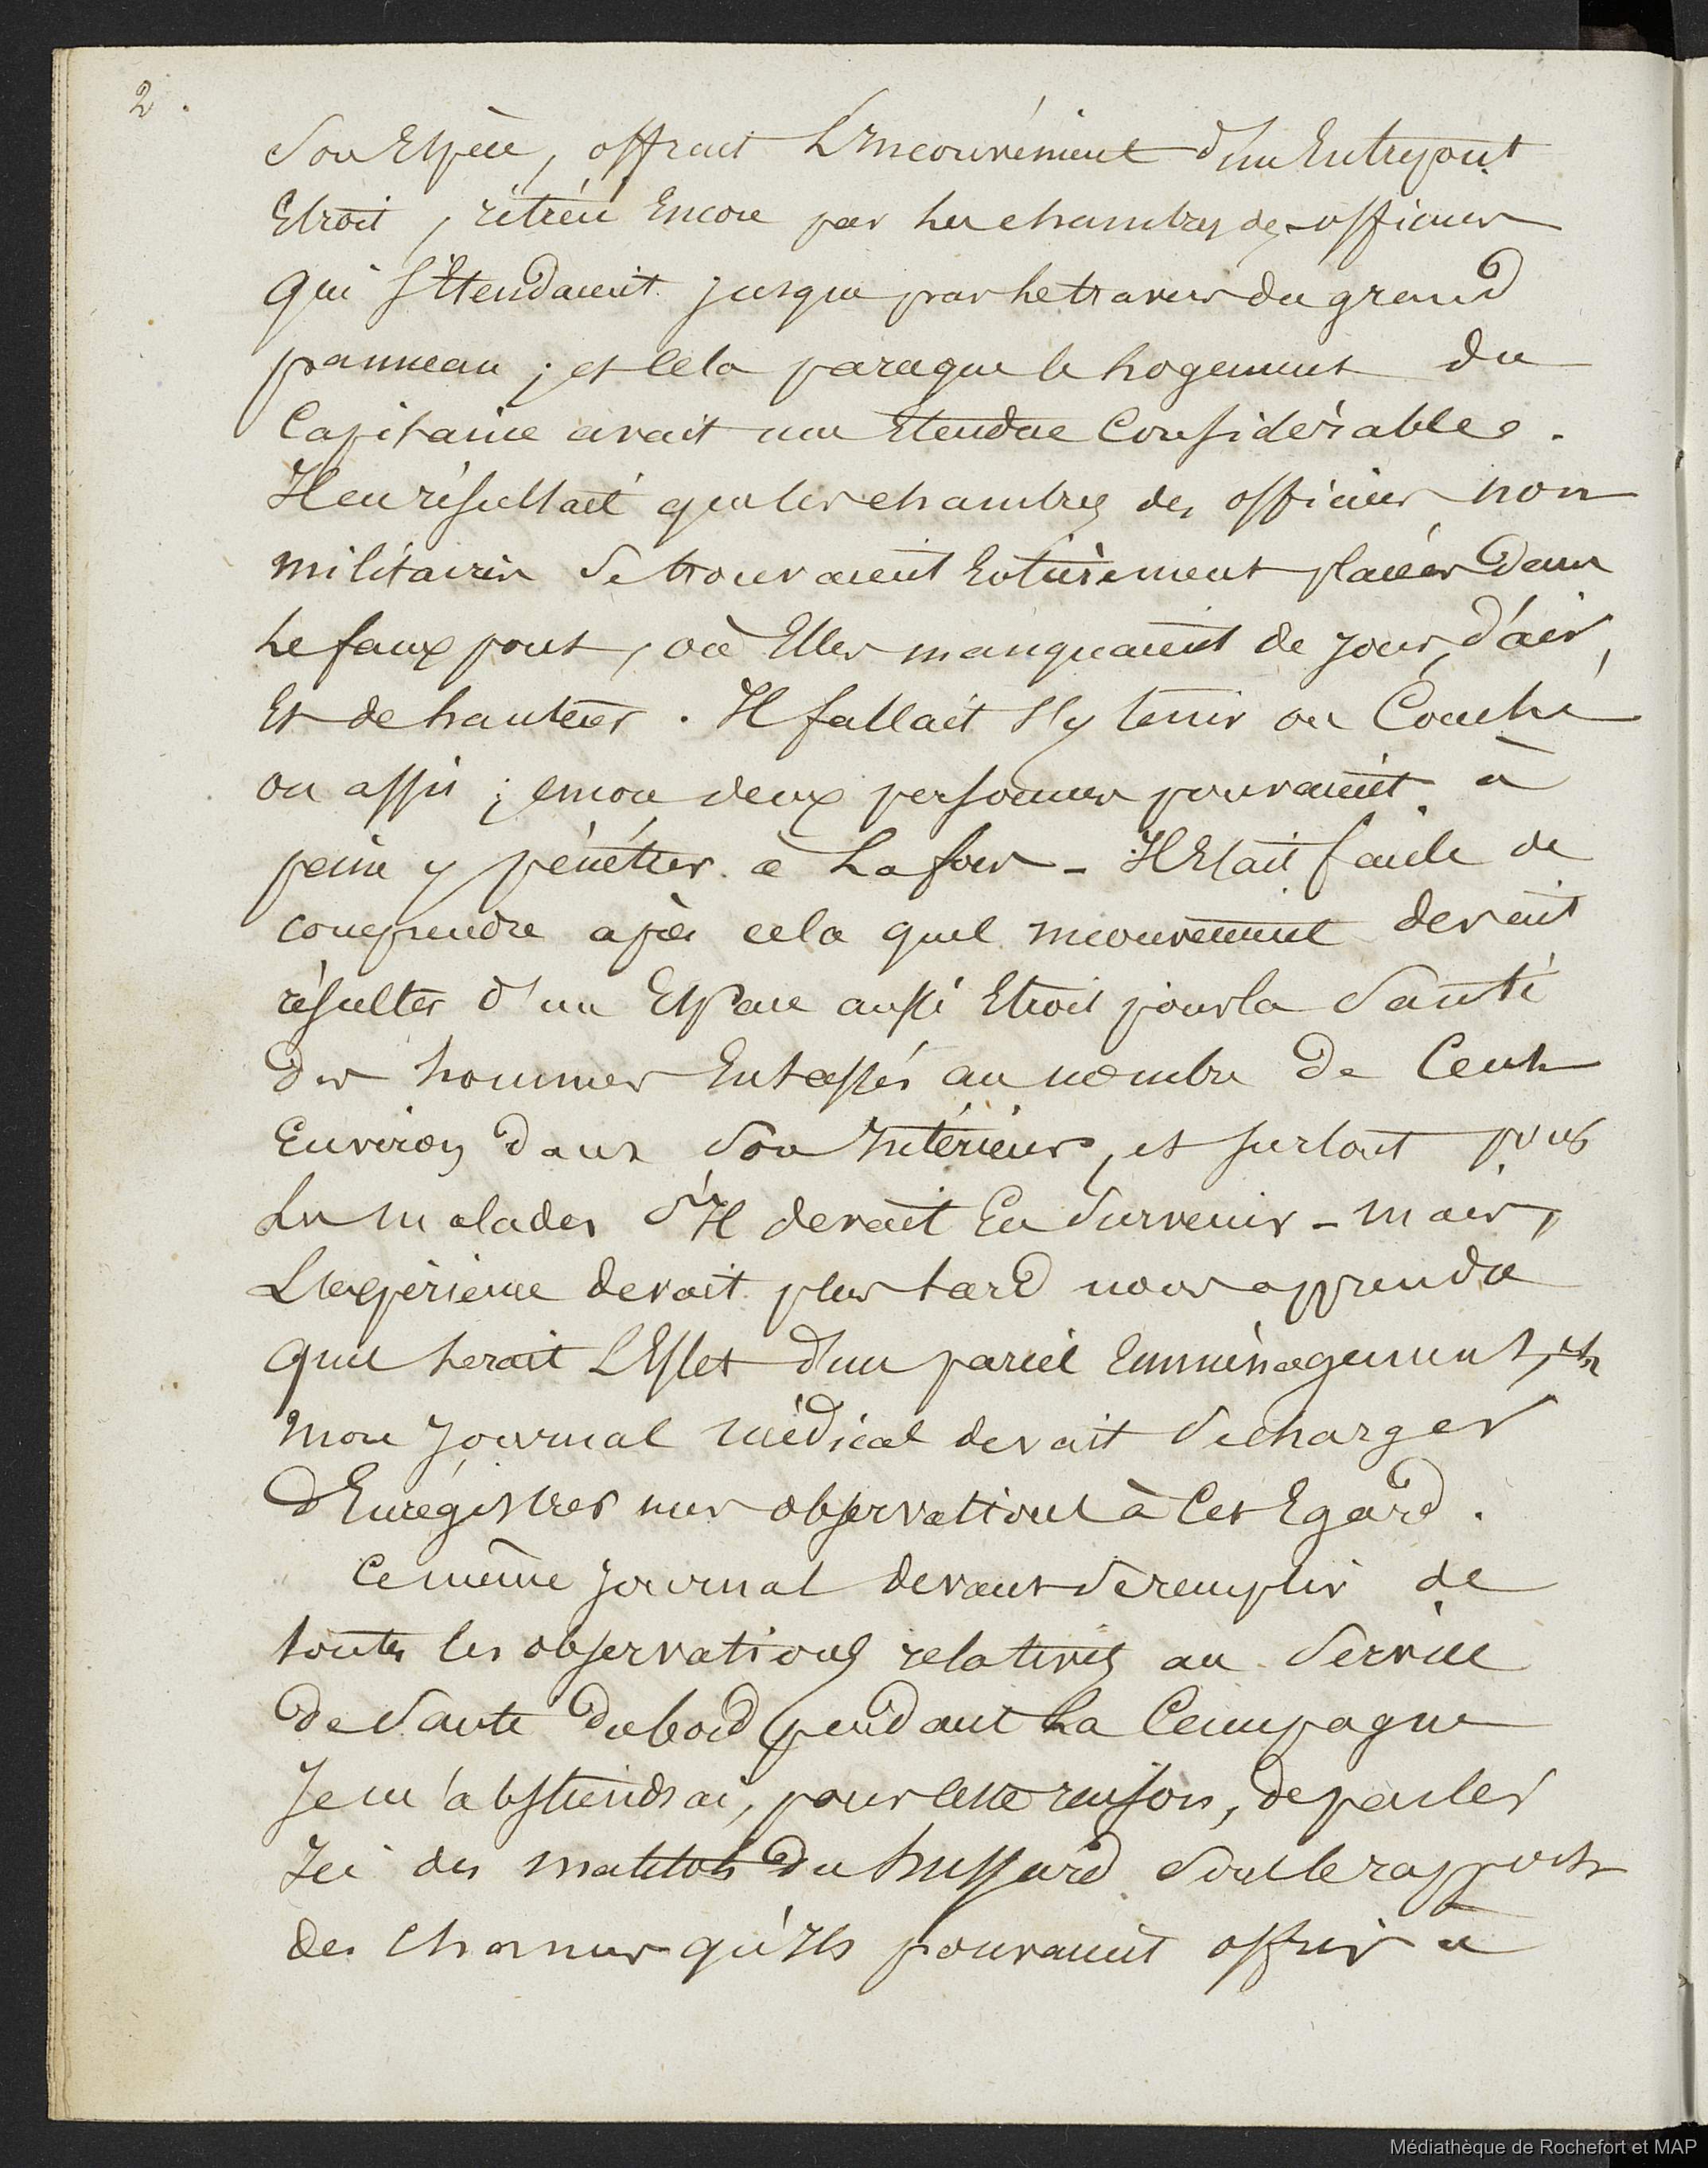 2.
Son Espèce, offrait L'Inconvénient d'un Entrepont
Etroit, rétréci Encore par les chambres des officiers
qui s'Etendaient jusque par le travers du grand
panneau ; et Cela parceque le Logement du
Capitaine avait une Etendue Considérable.
Il en résultait que les chambres des officiers non
militaires se trouvaient Entièrement placées Dans
Le faux pont, où Elles manquaient de jour, d'air,
Et de hauteur. Il fallait s'y tenir ou Couché
ou assis ; encore deux personnes pouvaient à
peine y pénétrer à La fois - Il Etait facile de
comprendre après cela quel inconvénient devait
résulter d'un Espace aussi Etroit pour la Santé
Des hommes Entassés au nombre De Cent
Environ Dans Son Intérieur, et surtout pour
Les malades S'Il devait En Survenir - mais,
L'expérience devait plus tard nous apprendre
quel serait L'Effet d'un pareil Emménagement, et
Mon Journal médical devait Se charger
D'Enrégistrer mes observations à Cet Egard.
Ce même Journal devant Se remplir de
toutes les observations relatives au Service
De Santé Du bord pendant La Campagne
Je m'abstiendrai, pour cette raison, de parler
Ici des matelots Du hussard Sous le rapport
des Chances qu'Ils pouvaient offrir à
Médiathèque de Rochefort et MAP